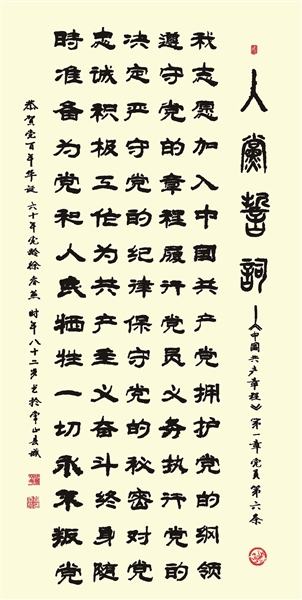 入黨誓詞
《中國共产章程》第一章党员第六条
我志愿加入中國共产党拥护党的纲领
遵守党的章程履行党员义务执行党的
决定严守党的纪律保守党的秘密对党
忠诚积极工作为共产主义奋斗终身随
時准备为党和人民牺牲一切永不叛党
恭贺党百年华诞 六十年党龄徐春燕 时年八十二岁书於常山县城